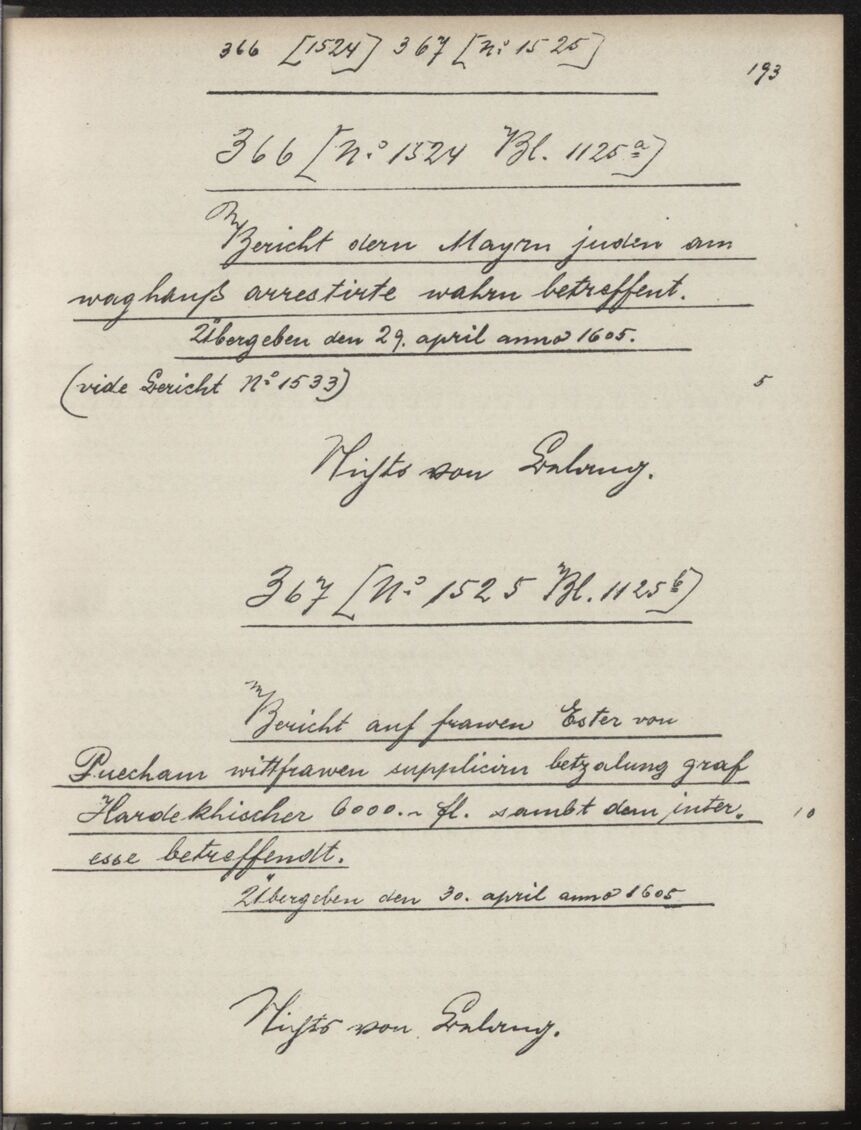 366 [1524] 367 [No 1525]
193
366 [No. 1524 Bl. 1125a]
Bericht dern Mayrn juden am
waghauß arrestirte wahrn betreffent.
Übergeben den 29. april anno 1605.
(vide Bericht No 1533)
5
Nichts von Belang.
367 [No. 1525 Bl. 1125b]
Bericht auf frawen Ester von
Puecham wittfrawen supplicirn betzalung graf
Hardekhischer 6000.- fl. sambt dem inter-
10
esse betreffendt.
Übergeben den 30. april anno 1605
Nichts von Belang.